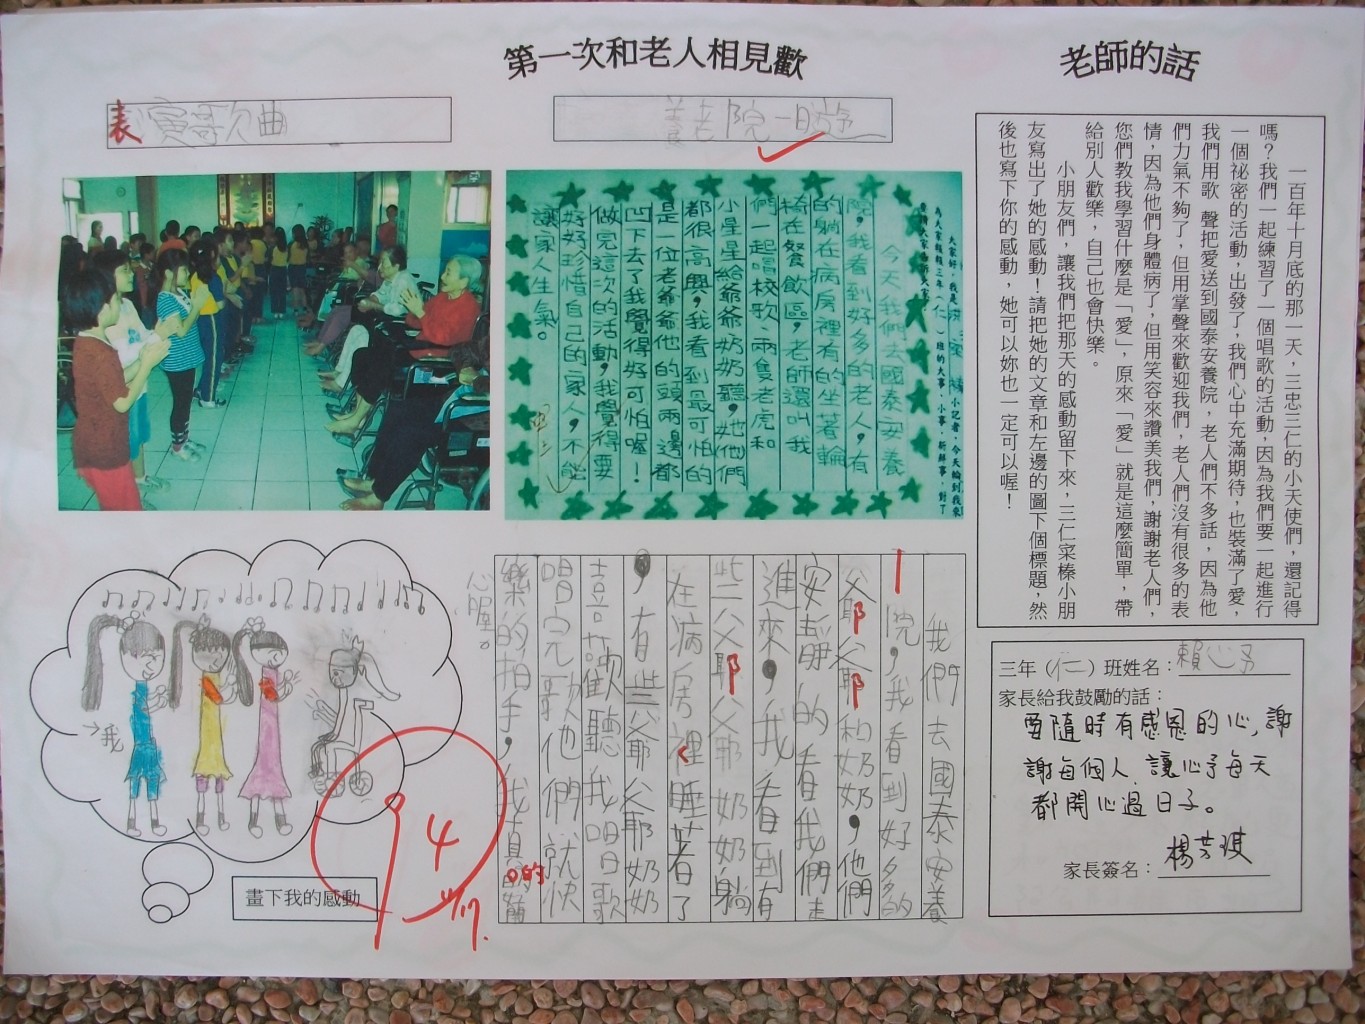 第一次和老人相見歡
老師的話
表演歌曲
養老院一日遊
一百年十月底的那一天，三忠三仁的小天使們，還記得
嗎？我們一起練習了一個唱歌的活動，因為我們要一起進行
一個祕密的活動，出發了，我們心中充滿期待，也裝滿了愛，
我們用歌 聲把愛送到國泰安養院，老人們不多話，因為他
們力氣不夠了，但用掌聲來歡迎我們，老人們沒有很多的表
情，因為他們身體病了，但用笑容來讚美我們，謝謝老人們，
您們教我學習什麼是「愛」，原來「愛」就是這麼簡單，帶
給別人歡樂，自己也會快樂。
小朋友們，讓我們把那天的感動留下來，三仁寀榛小朋
友寫出了她的感動！請把她的文章和左邊的圖下個標題，然
後也寫下你的感動，她可以妳也一定可以喔！
今天我們去國泰安養
院，我看到好多的老人，有
的躺在病房裡有的坐著輪
椅在餐飲區，老師還叫我
們一起唱校歌、兩隻老虎和
小星星給爺爺奶奶聽，她他們
都很高興，我看到最可怕的
是一位老爺爺他的頭兩邊都
凹下去了我覺得好可怕喔！
做完這次的活動，我覺得要
好好珍惜自己的家人，不能
讓家人生氣。
我們去國泰安養
院，我看到好多的
爺爺和奶奶，他們
安靜的看我們走
進來，我看到有
些爺爺奶奶躺
在病房裡睡著了
，有些爺爺奶奶
喜歡聽我唱歌
唱完歌他們就快
樂的拍手，我真的好開
心喔。
→我
畫下我的感動
三年（仁）班姓名：賴心予
家長給我鼓勵的話：
要隨時有感恩的心，謝
謝每個人，讓心予每天
都開心過日子。
家長簽名：楊芳琪